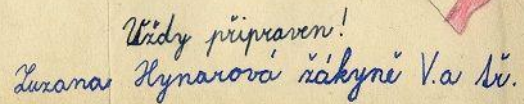 Vždy připraven!
Zuzana Hynarová žákyně V.a tř.